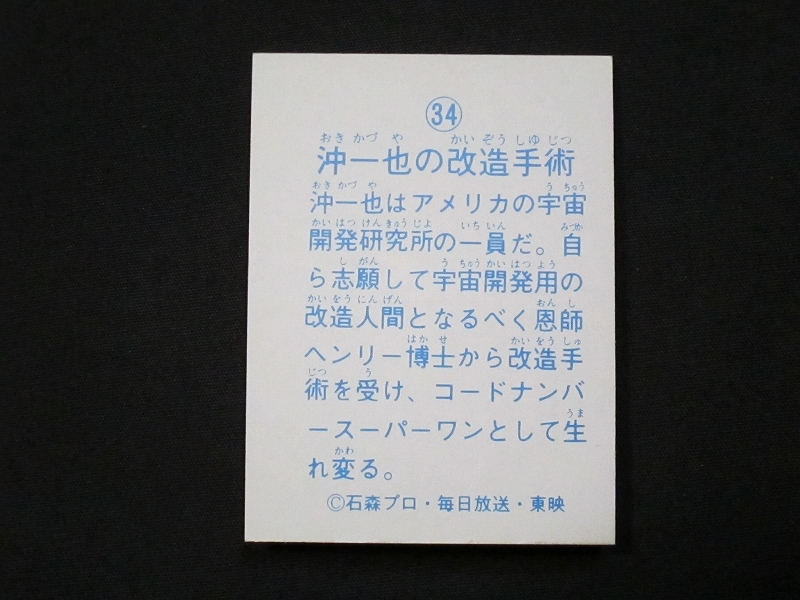 34
沖一也の改造手術
沖一也はアメリカの宇宙
開発研究所の一員だ。自
ら志願して宇宙開発用の
改造人間となるべく恩師
ヘンリー博士から改造手
術を受け、コードナンバ
ースーパーワンとして生
れ変る。
©石森プロ・毎日放送・東映